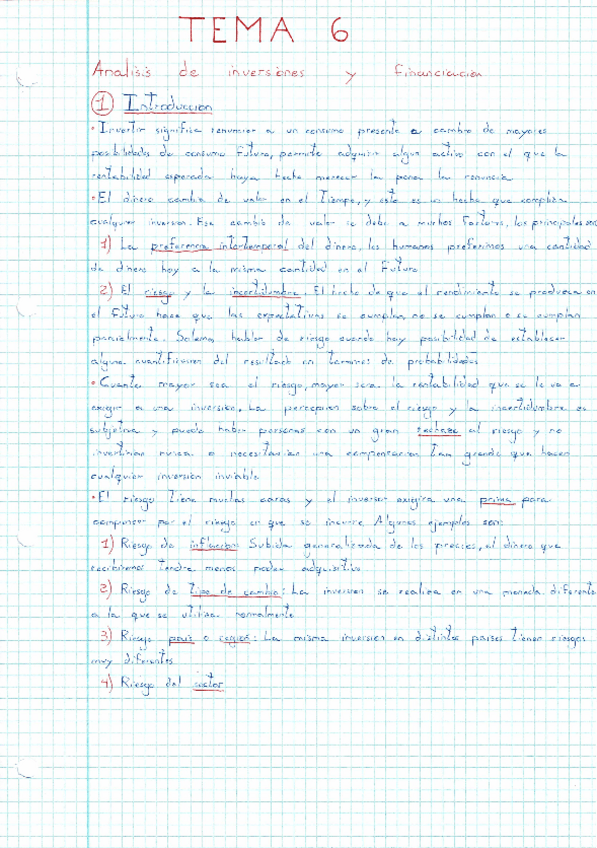 TEMA 6
Analisis de inversiones y financiacion
1 Introduccion
• Invertir significa renunciar a un consumo presente a cambio de mayores
posibilidades de consumo futuro, permite adquirir algun activo con el que la
rentabilidad esperada haya hecho merecer la pena la renuncia
• El dinero cambia de valor en el Tiempo, y este es un hecho que complica
cualquier inversion. Ese cambio de valor se debe a muchos factores, los principales son:
1) La preferencia intertemporal del dinero, los humanos preferimos una cantidad
de dinero hoy a la misma cantidad en el futuro
2) El riesgo y la incertidumbre: El hecho de que el rendimiento se produzca en
el futuro hace que las expectativas se cumplan, no se cumplan o se cumplan
parcialmente. Solemos hablar de riesgo cuando hay posibilidad de establecer
alguna cuantificacion del resultado en terminos de probabilidades
• Cuanto mayor sea el riesgo, mayor sera la rentabilidad que se le va a
exigir a una inversion. La percepcion sobre el riesgo y la incertidumbre es
subjetiva y puede haber personas con un gran rechazo al riesgo y no
invertirian nunca o necesitarian una compensacion tan grande que hacen
cualquier inversion inviable
• El riesgo tiene muchas caras y el inversor exigira una prima para
compensar por el riesgo en que se incurre. Algunos ejemplos son:
1) Riesgo de inflacion: Subida generalizada de los precios, el dinero que
recibiremos tendra menos poder adquisitivo
2) Riesgo de tipo de cambio: La inversion se realiza en una moneda diferente
a la que se utiliza normalmente
3) Riesgo pais o region: La misma inversion en distintos paises tienen riesgos
muy diferentes
4) Riesgo del sector